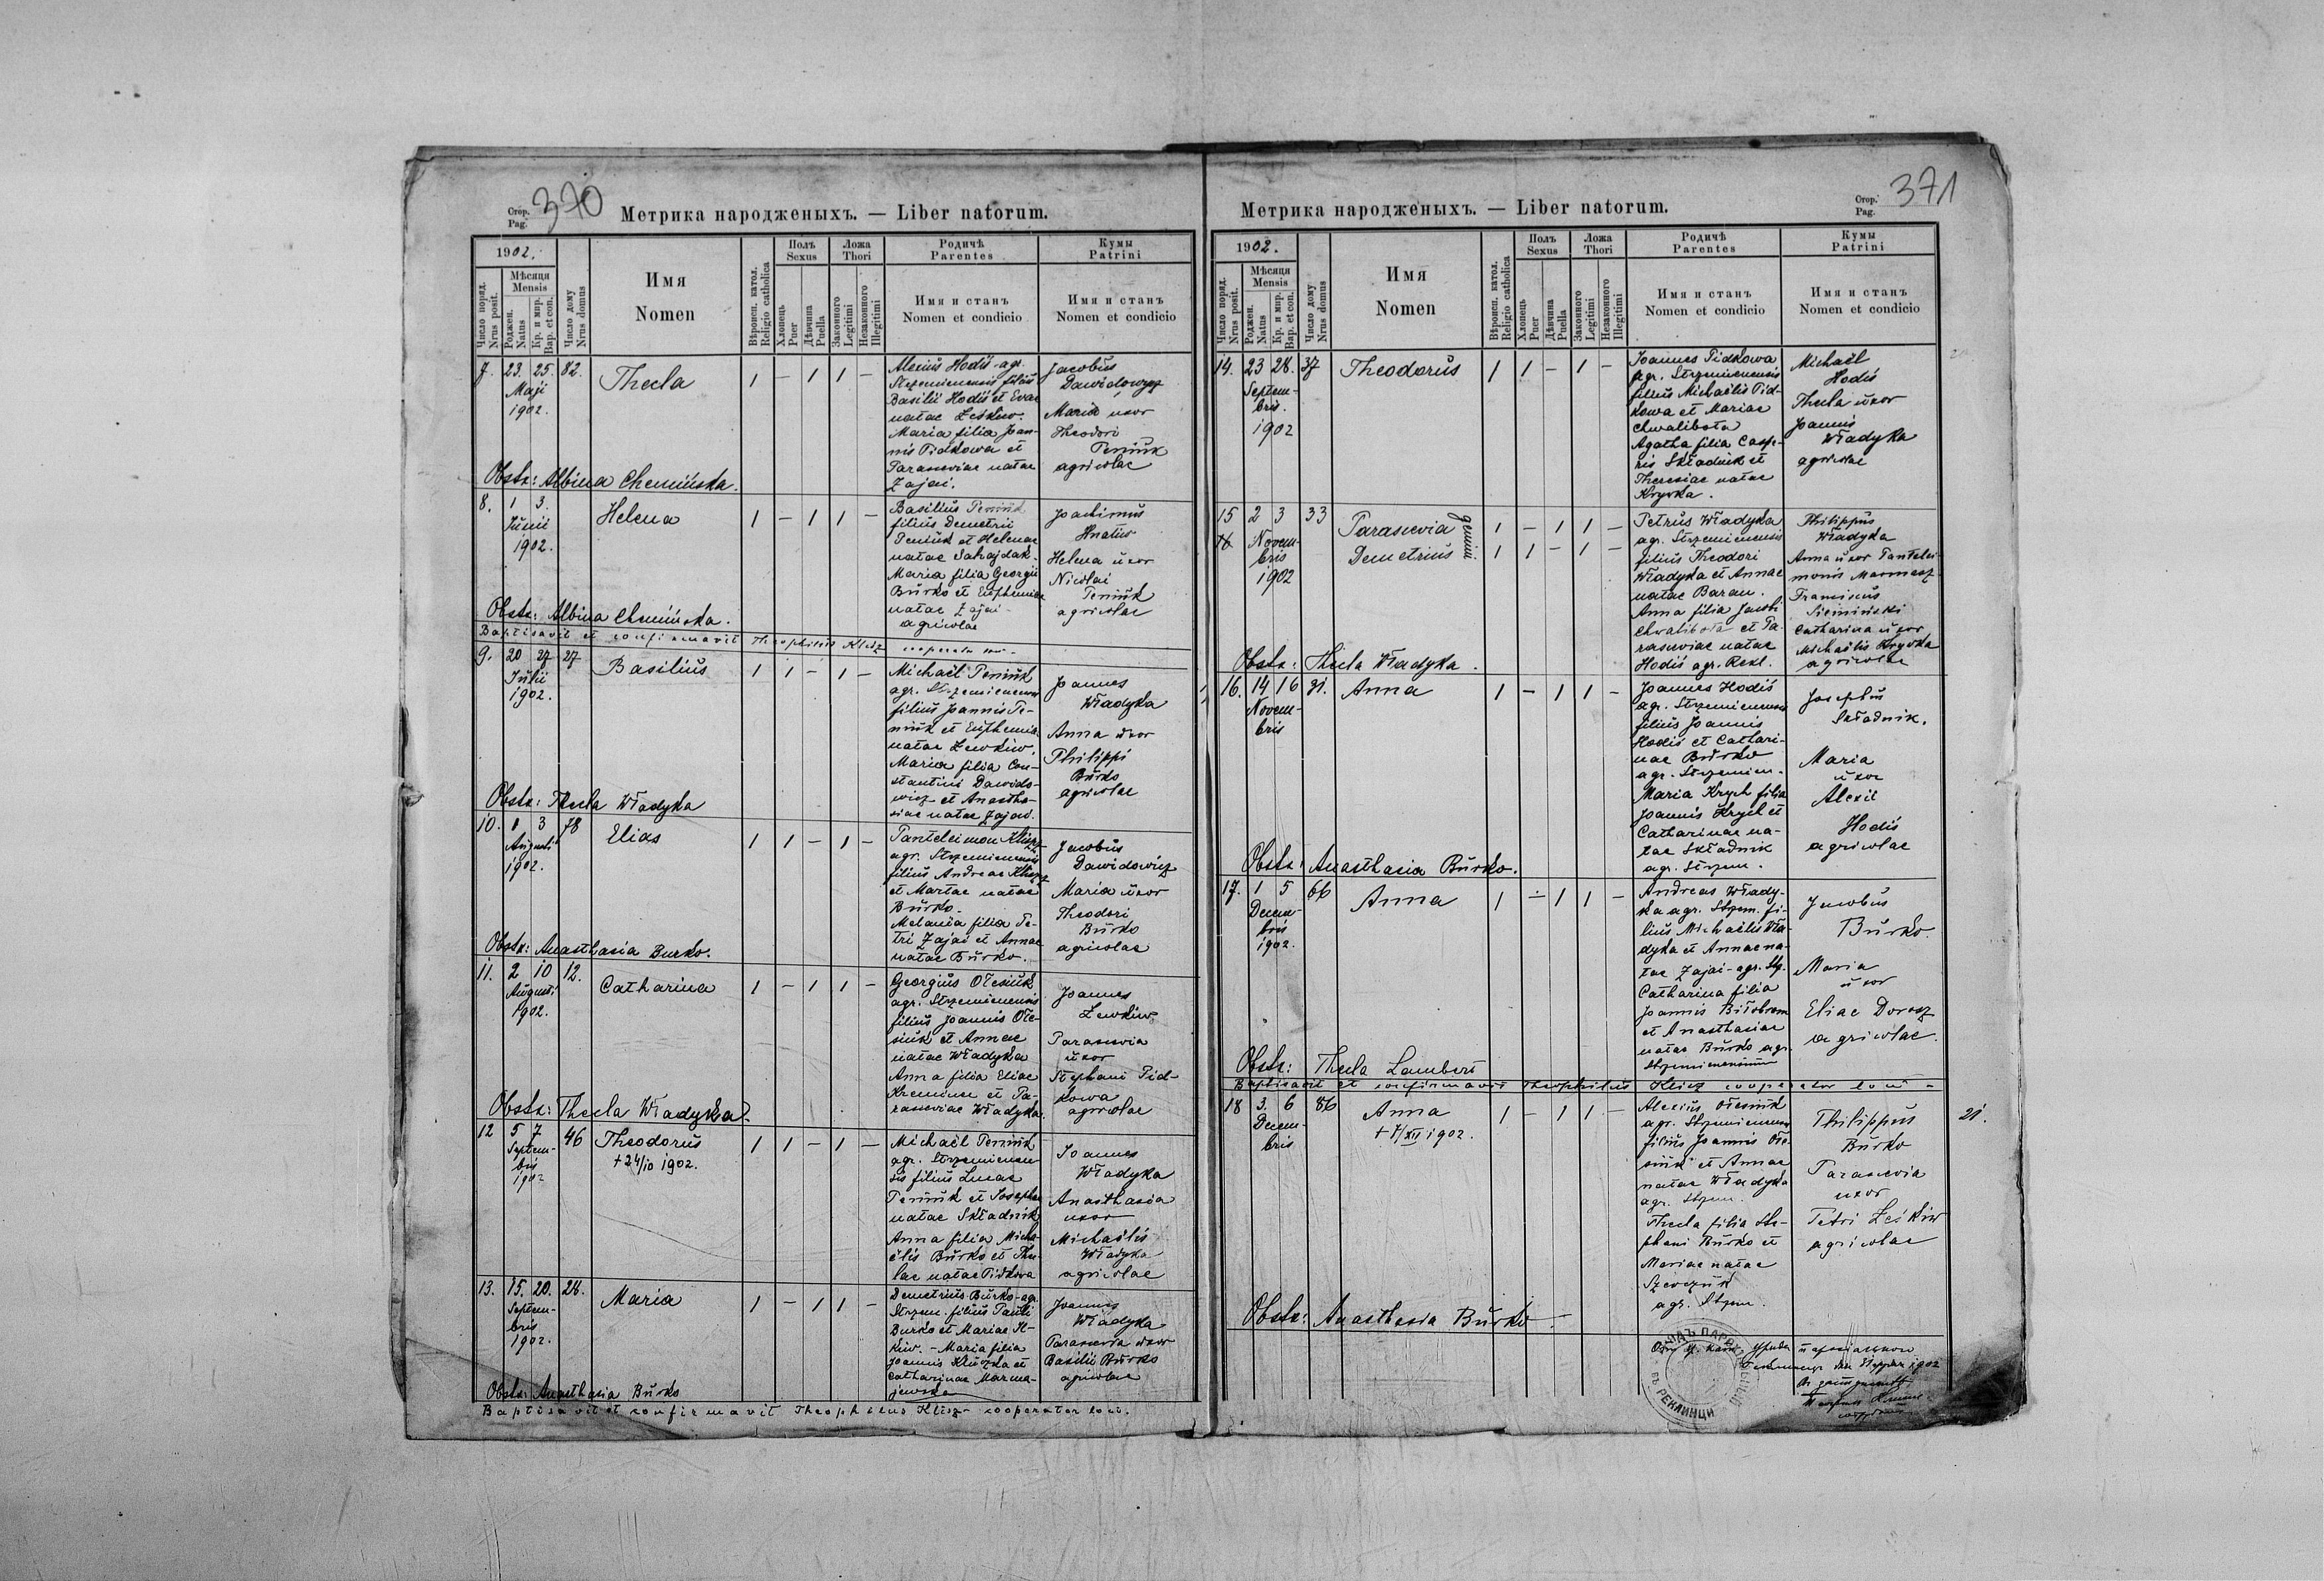 Стор.
Pag.
370
Метрика народженыхъ. — Liber natorum.
1902.
Число поряд.
Nrus posit.
Мѣсяця
Mensis
Роджен.
Natus
Кр. и мир.
Bap. et con.
Число дому
Nrus domus
Имя
Nomen
Вѣроисп. катол.
Religio catholica
Полъ
Sexus
Хлопець
Puer
Дѣвчина
Puella
Ложа
Thori
Законного
Legitimi
Незаконного
Illegitimi
Родичѣ
Parentes
Имя и станъ
Nomen et condicio
Кумы
Patrini
Имя и станъ
Nomen et condicio
7. 23. 25. 82.
Maji
1902.
Thecla
1 – 1 1 –
Alexius Hodiś agr.
Strzemienensis filius
Basilii Hodiś et Evae
natae Leśkiw.
Maria filia Joan-
nis Pidkowa et
Parasceviae natae
Zajac.
Jacobus
Dawidowycz
Maria uxor
Theodori
Peniuk
agricolae
Obstr: Albina Chemińska.
8. 1 3.
Junii
1902.
Helena
1 – 1 1 –
Basilius Peniuk
filius Demetrii
Peniuk et Helenae
natae Sahajdak
Maria filia Georgii
Burko et Euphemiae
natae Zajac
agricolae
Joachimus
Hnatiw
Helena uxor
Nicolai
Peniuk
agricolae
Obstr: Albina Chemińska.
Baptisavit et confirmavit Theophilus Klisz cooperator loci
9. 20 27 27
Julii
1902.
Basilius
1 1 – 1 –
Michaël Peniuk
agr. Strzemienensis
filius Joannis Pe-
niuk et Euphemiae
natae Lewkiw.
Maria filia Con-
stantini Dawido-
wicz et Anastha-
siae natae Zajac.
Joannes
Władyka
Anna uxor
Philippi
Burko
agricolae
Obstr: Thecla Władyka
10. 1 3 78
Augusti
1902.
Elias
1 1 – 1 –
Panteleimon
agr. Strzemienensis
filius Andreae
et Martae natae
Burko.
Melania filia Pe-
tri Zajac et Annae
natae Burko.
Jacobus
Dawidowicz
Maria uxor
Theodori
Burko
agricolae
Obstr: Anasthasia Burko.
11. 2 10 12.
Augusti
1902.
Catharina
1 – 1 1 –
Georgius Ołesiuk
agr. Strzemienensis
filius Joannis Ołe-
siuk et Annae
natae Władyka
Anna filia Eliae
et Pa-
rasceviae Władyka.
Joannes
Lewkiw
Parascevia
uxor
Stephani Pid-
kowa
agricolae
Obstr: Thecla Władyka.
12 5 7 46
Septem-
bris
1902
Theodorus
+ 24/10 1902.
1 1 – 1 –
Michaël Peniuk
agr. Strzemienen-
sis filius Lucae
Peniuk et Josephae
natae Składnik
Anna filia Micha-
ëlis Burko et The-
lae natae Pidkowa
Joannes
Władyka
Anasthasia
uxor
Michaëlis
Władyka
agricolae
13. 15. 20. 28.
Septem-
bris
1902.
Maria
1 – 1 1 –
Demetrius Burko agr.
Strzem. filius Pauli
Burko et Mariae Il-
kiw. – Maria filia
Joannis Kluczka et
Catharinae Marma-
jewska
Joannes
Władyka
Parascevia uxor
Basilii Burko
agricolae
Obstr: Anasthasia Burko
Baptisavit et confirmavit Theophilus Klisz cooperator loci.
Стор.
Pag.
371
Метрика народженыхъ. — Liber natorum.
1902.
Число поряд.
Nrus posit.
Мѣсяця
Mensis
Роджен.
Natus
Кр. и мир.
Bap. et con.
Число дому
Nrus domus
Имя
Nomen
Вѣроисп. катол.
Religio catholica
Полъ
Sexus
Хлопець
Puer
Дѣвчина
Puella
Ложа
Thori
Законного
Legitimi
Незаконного
Illegitimi
Родичѣ
Parentes
Имя и станъ
Nomen et condicio
Кумы
Patrini
Имя и станъ
Nomen et condicio
14. 23 28. 37
Septem-
bris.
1902
Theodorus
1 1 – 1 –
Joannes Pidkowa
agr. Strzemienensis
filius Michaëlis Pid-
kowa et Mariae
Chwalibota
Agatha filia Caspe-
ris Składnik et
Theresiae natae
Krywka.
Michaël
Hodiś
Thecla uxor
Joannis
Władyka
agricolae
15 2 3 33
16
Novem-
bris
1902
Parascevia
Demetrius
gemini
1 – 1 1 –
1 1 – 1 –
Petrus Władyka
agr. Strzemienensis
filius Theodori
Władyka et Annae
natae Baran.
Anna filia Jacobi
Chwalibota et Pa-
rasceviae natae
Hodiś agr. Rekl.
Philippus
Władyka
Anna uxor Pantelei-
monis
Franciscus
Siemiński
Catharina uxor
Michaëlis Krywka
agricolae
Obstr: Thecla Władyka.
16. 14 16 31.
Novem-
bris
Anna
1 – 1 1 –
Joannes Hodiś
agr. Strzemienensis
filius Joannis
Hodiś et Cathari-
nae Burko
agr. Strzemien.
Maria Krych filia
Joannis Krych et
Catharinae na-
tae Składnik
agr. Strzem.
Josephus
Składnik.
Maria
uxor
Alexii
Hodiś
agricolae
Obstr: Anasthasia Burko.
17. 1 5 66
Decem-
bris
1902.
Anna
1 – 1 1 –
Andreas Włady-
ka agr. Strzem. fi-
lius Michaëlis Wła-
dyka et Annae na-
tae Zajac agr. Str.
Catharina filia
Joannis Biłobram
et Anasthasiae
natae Burko agr.
Strzemienensium
Jacobus
Burko.
Maria
uxor
Eliae Dorosz
agricolae.
Obstr: Thecla Lambert
Baptisavit et confirmavit Theophilus Klisz cooperator loci
18 3. 6 86
Decem-
bris
Anna
+ 7/XII 1902.
1 – 1 1 –
Alexius Ołesiuk
agr. Strzemienensis
filius Joannis Ołe-
siuk et Annae
natae Władyka
agr. Strzem.
Thecla filia Ste-
phani Burko et
Mariae natae
Szewczuk
agr. Strzem.
Philippus
Burko
Parascevia
uxor
Petri Leśkiw
agricolae
21.
Obstr: Anasthasia Burko.
1902
РЕКЛИНЦИ